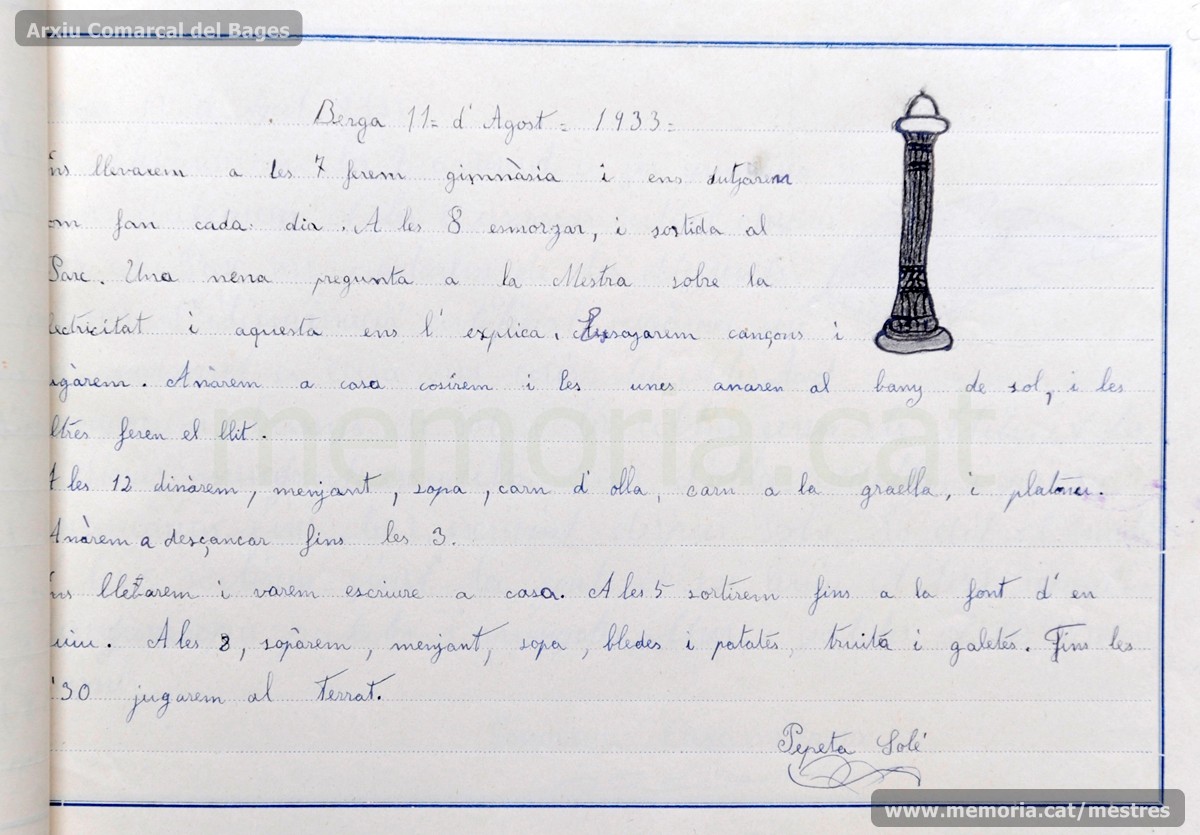 Arxiu Comarcal del Bages
Berga 11= d'Agost = 1933=
ns llevarem a les 7 ferem gimnàsia i ens dutxarem
om fan cada dia. A les 8 esmorzar, i sortida al
Parc. Una nena pregunta a la Mestra sobre la
lectricitat i aquesta ens l'explica. Ensajarem cançons i
ugàrem. Anàrem a casa cosírem i les unes anaren al bany de sol, i les
ltres feren el llit.
A les 12 dinàrem, menjant, sopa, carn d'olla, carn a la graella, i platans.
Anàrem a desçancar fins les 3.
ns llevarem i varem escriure a casa. A les 5 sortirem fins a la font d'en
uiu. A les 8, sopàrem, menjant, sopa, bledes i patates, truita i galetes. Fins les
'30 jugarem al terrat.
Pepeta Solé
memoria.cat
www.memoria.cat/mestres